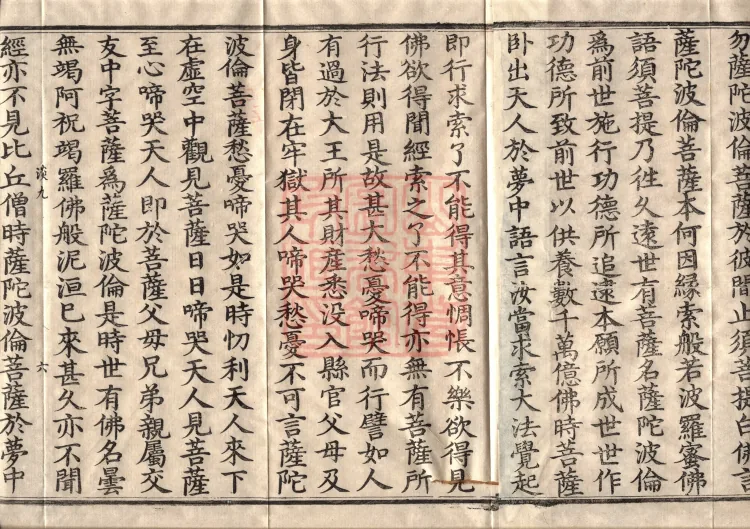 勿薩陀波倫菩薩於彼間止須菩提白佛言
薩陀波倫菩薩本何因緣索般若波羅蜜佛
語須菩提乃徃久遠世有菩薩名薩陀波倫
爲前世施行功德所追逮本願所成世世作
功德所致前世以供養數千萬億佛時菩薩
卧出天人於夢中語言汝當求索大法覺起
即行求索了不能得其意惆悵不樂欲得見
佛欲得聞經索之了不能得亦無有菩薩所
行法則用是故甚大愁憂啼哭而行譬如人
有過於大王所其財産悉没入縣官父母及
身皆閉在牢獄其人啼哭愁憂不可言薩陀
波倫菩薩愁憂啼哭如是時忉利天人來下
在虛空中觀見菩薩日日啼哭天人見菩薩
至心啼哭天人即於菩薩父母兄弟親屬交
友中字菩薩爲薩陀波倫是時世有佛名曇
無竭阿祝竭羅佛般泥洹已來甚久亦不聞
淡九 六
經亦不見比丘僧時薩陀波倫菩薩於夢中